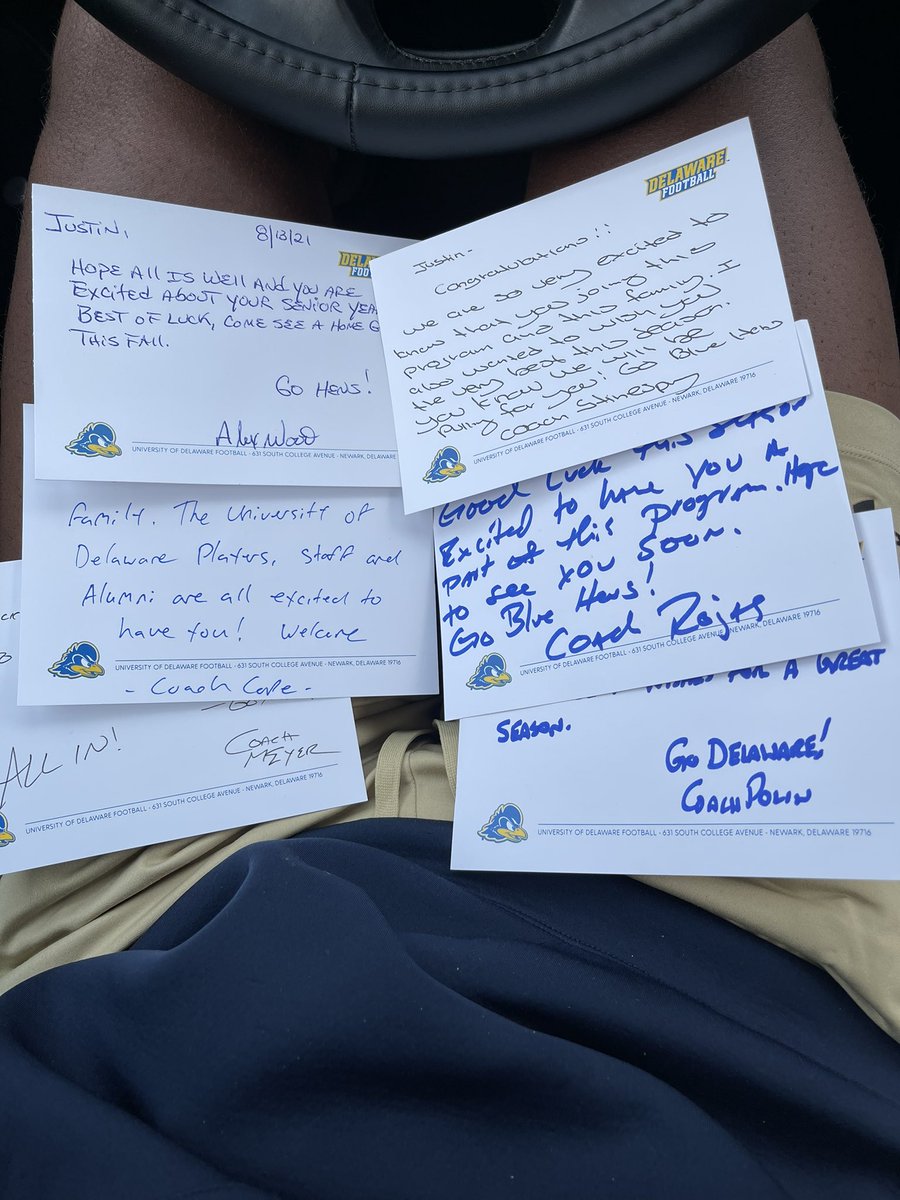 Justin,
8/13/21
DELA
FOO
Hope All Is Well And You Are
Excited About Your Senior Year
Best of Luck, Come See A Home G
This Fall.
Go Hens!
Alex Wood
UNIVERSITY OF DELAWARE FOOTBALL · 631 SOUTH COLLEGE AVENUE · NEWARK, DELAWARE
DELAWARE
FOOTBALL
Justin-
Congratulations!!
We are so very excited to
know that you joing this
program and this family. I
also wanted to wish you
the very best this season.
You know we will be
pulling for you! Go Blue Hens
Coach Stinespring
UNIVERSITY OF DELAWARE FOOTBALL · 631 SOUTH COLLEGE AVENUE · NEWARK, DELAWARE 19716
Family. The University of
Delaware Players, Staff and
Alumni are all excited to
have you! Welcome
UNIVERSITY OF DELAWARE FOOTBALL · 631 SOUTH COLLEGE AVENUE · NEWARK, DELAWARE 19716
- Coach Cope -
Good Luck this season
Excited to have you A
part of this program. Hope
to see you soon.
Go Blue Hens!
Coach Rojas
UNIVERSITY OF DELAWARE FOOTBALL · 631 SOUTH COLLEGE AVENUE · NEWARK, DELAWARE 19716
ALL IN!
COACH
MEYER
UNIVERSITY OF DELAWARE FOOTBALL · 631 SOUTH COLLEGE AVENUE · NEWARK, DELAWARE 19716
FOR A GREAT
SEASON.
GO DELAWARE!
UNIVERSITY OF DELAWARE FOOTBALL · 631 SOUTH COLLEGE AVENUE · NEWARK, DELAWARE 19716